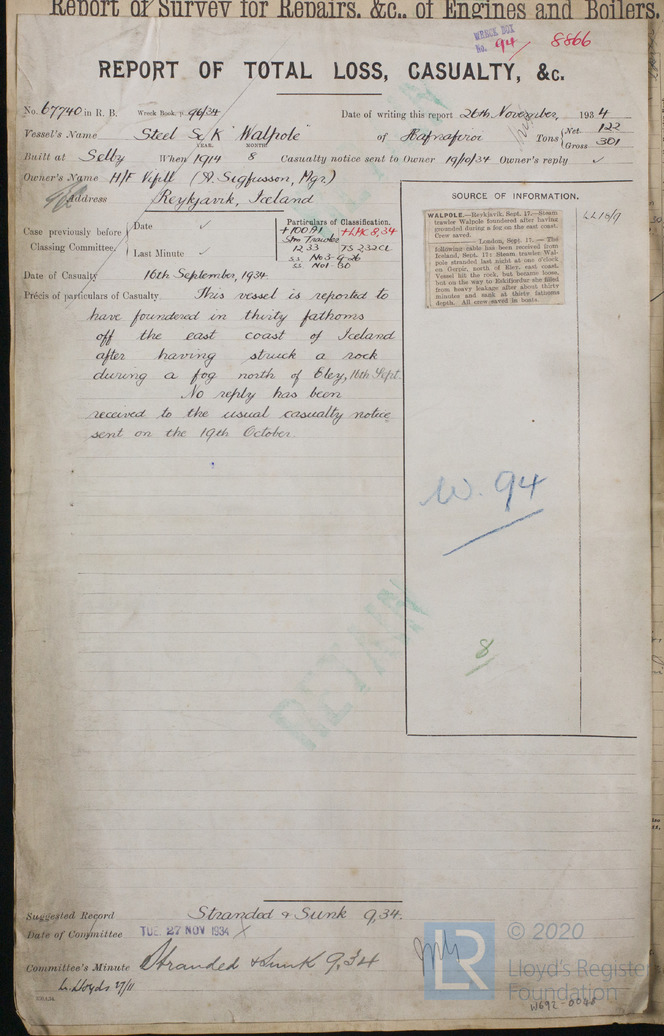 Report of Survey for Repairs, &c., of Engines and Boilers.
WRECK BOX
No. 94
8866
REPORT OF TOTAL LOSS, CASUALTY, &c.
No. 67740 in R. B. Wreck Book, p. 96/34 Date of writing this report 26th November, 1934
Vessel's Name Steel Sc/K "Walpole" of Tons { Net 122
Gross 301
Built at Selby When 1914 8 Casualty notice sent to Owner 19/10/34 Owner's reply ✓
YEAR. MONTH.
Owner's Name H/F (A. Sigfusson, Mgr)
Address Reykjavik, Iceland
Case previously before Classing Committee. { Date ✓
Last Minute ✓
Particulars of Classification.
+100A1 +LMC 8,34
Stm Trawler
12 33
S.S. No3-9-26
S.S. No1-30
SOURCE OF INFORMATION.
WALPOLE.—Reykjavik, Sept. 17.—Steam
trawler Walpole foundered after having
grounded during a fog on the east coast.
Crew saved.
London, Sept. 17. — The
following cable has been received from
Iceland, Sept. 17: Steam trawler Wal-
pole stranded last night at one o'clock
on Gerpir, north of Eley, east coast.
Vessel hit the rock, but became loose,
but on the way to Eskifjordur she filled
from heavy leakage after about thirty
minutes and sank at thirty fathoms
depth. All crew saved in boats.
LL 18/9
Date of Casualty 16th September, 1934.
Précis of particulars of Casualty. This vessel is reported to
have foundered in thirty fathoms
off the east coast of Iceland
after having struck a rock
during a fog north of Eley, 16th Sept.
No reply has been
received to the usual casualty notice
sent on the 19th October.
W. 94
8
RETAIN
Suggested Record Stranded & Sunk 9,34.
Date of Committee TUE. 27 NOV 1934
Committee's Minute Stranded & Sunk 9,34
Lloyds 27/11
LR
© 2020
Lloyd's Register
Foundation
W692-0048